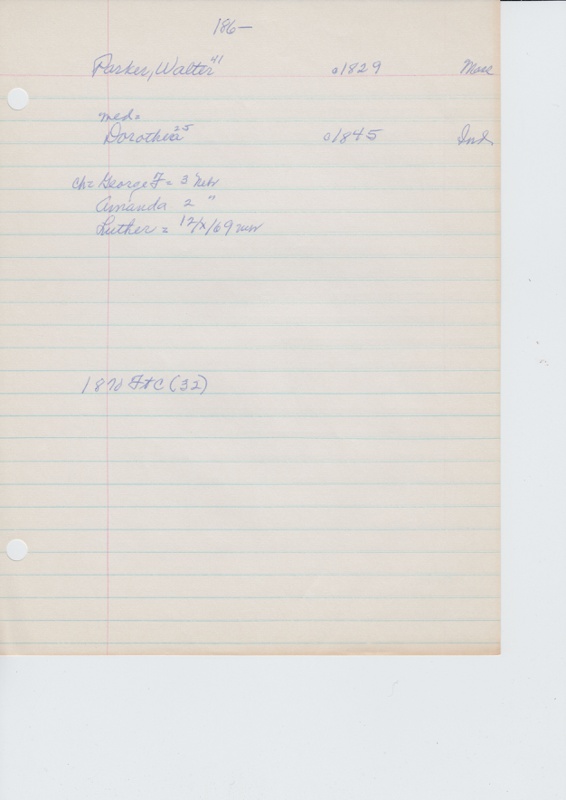 186—
Parker, Walter 41 c1829 Mass
med=
Dorothea 25 c1845 Ind
ch= George F = 3 Nebr
Amanda 2 "
Luther = 12/x/69 nebr
1870 F+C (32)